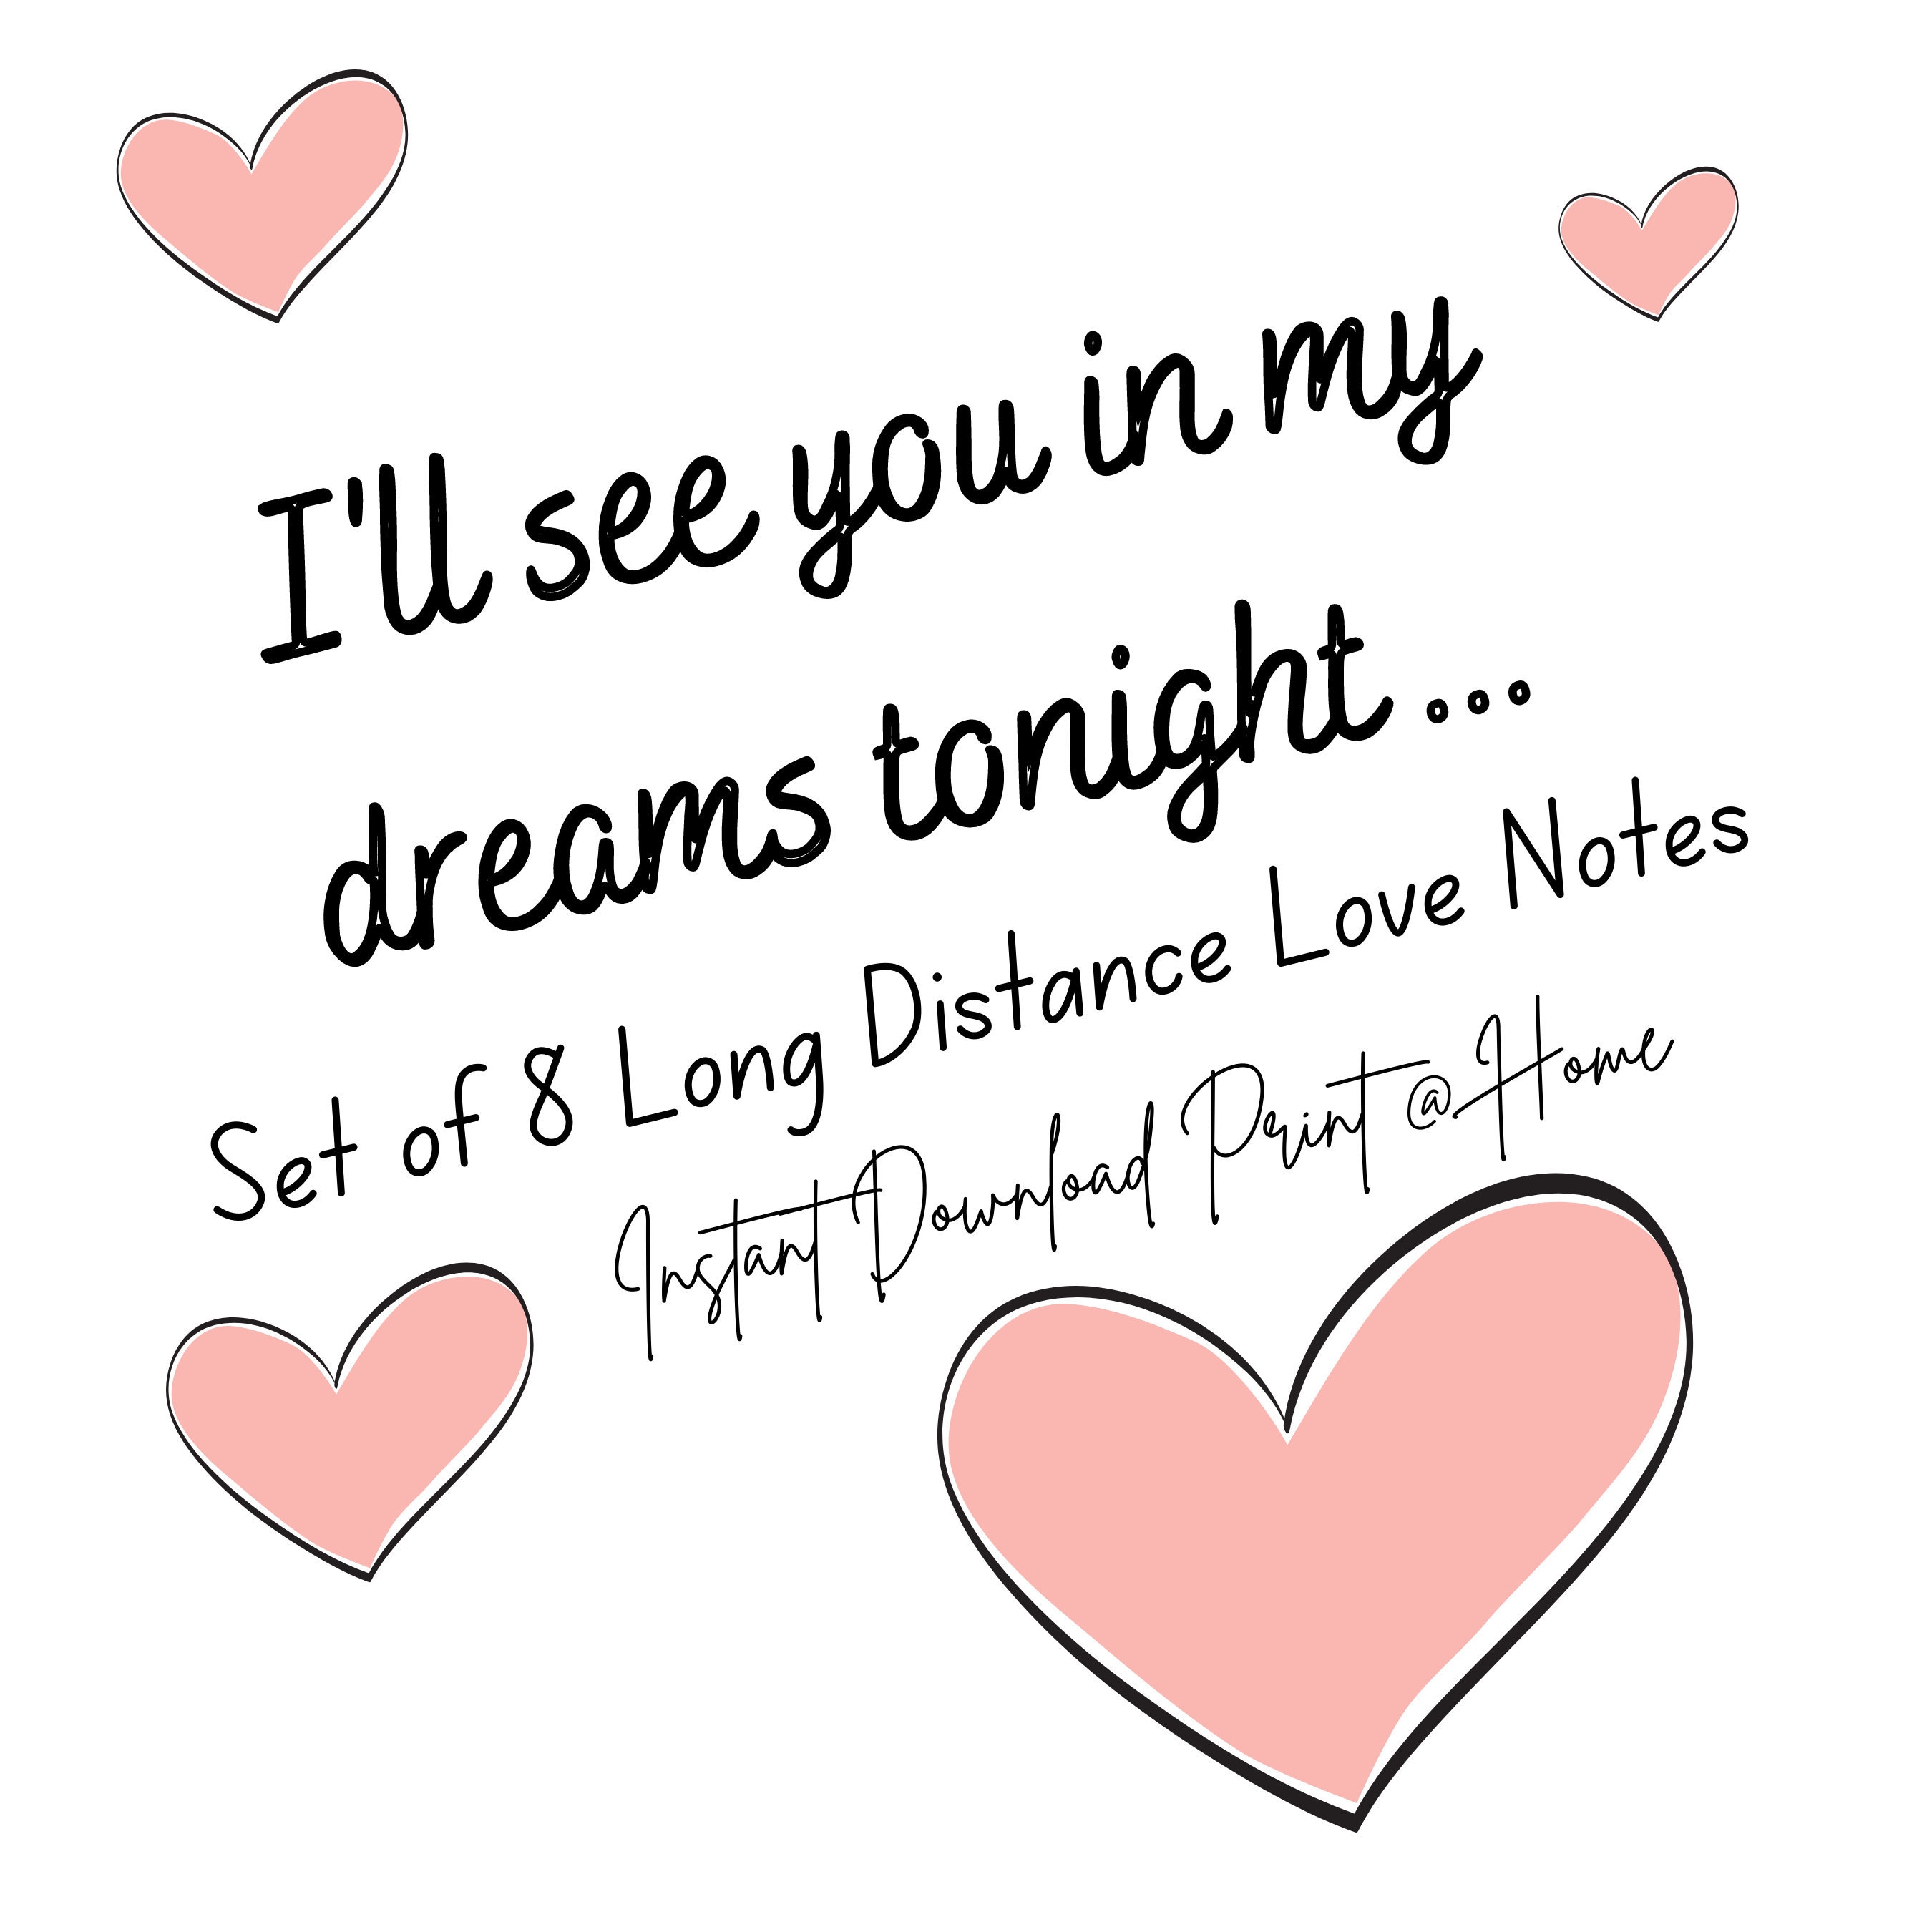 I'll see you in my
dreams tonight ...
Set of 8 Long Distance Love Notes
Instant Download Print @ Home